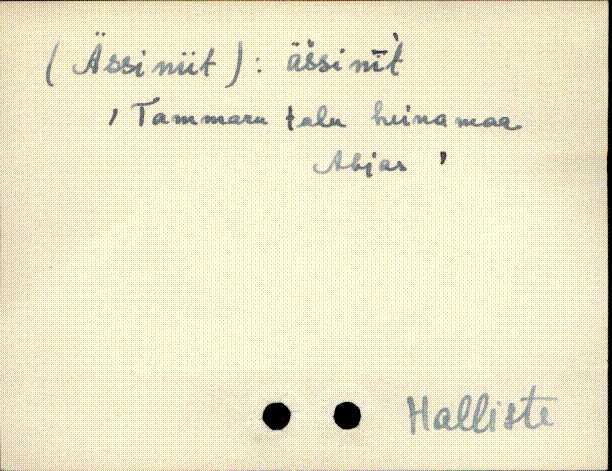 ( Ässiniit ) : äśsinī̀t
' Tammaru talu heinamaa
Abjas '
Halliste